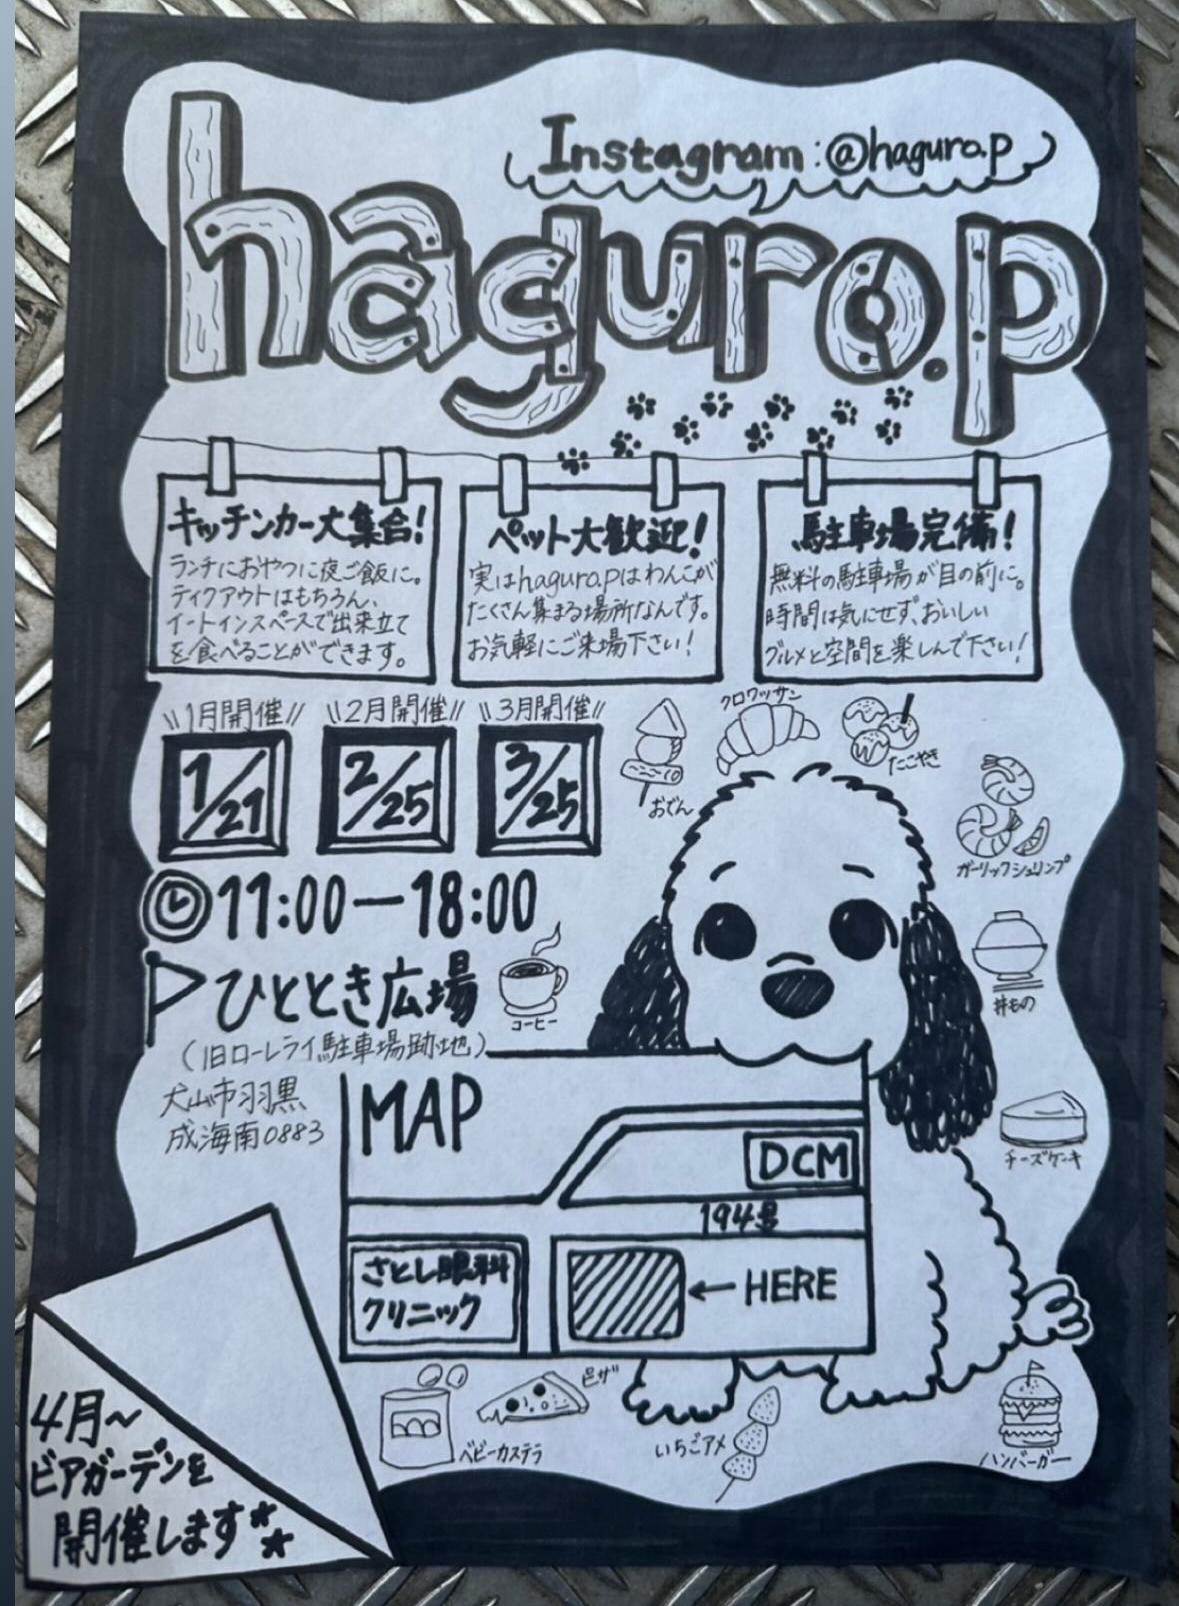 Instagram:@haguro.p
haguro.p
キッチンカー大集合!
ランチにおやつに夜ご飯に。
テイクアウトはもちろん、
イートインスペースで出来立て
を食べることができます。
ペット大歓迎!
実はhaguro.pはわんこが
たくさん集まる場所なんです。
お気軽にご来場下さい!
駐車場完備!
無料の駐車場が目の前に。
時間は気にせず、おいしい
グルメと空間を楽しんで下さい!
\\1月開催//
1/21
\\2月開催//
2/25
\\3月開催//
3/25
11:00ー18:00
ひととき広場
(旧ローレライ駐車場跡地)
犬山市羽黒
成海南0883
おでん
クロワッサン
たこやき
ガーリックシュリンプ
コーヒー
丼もの
チーズケーキ
MAP
DCM
194号
さとし眼科
クリニック
←HERE
ベビーカステラ
ピザ
いちごアメ
ハンバーガー
4月~
ビアガーデンを
開催します